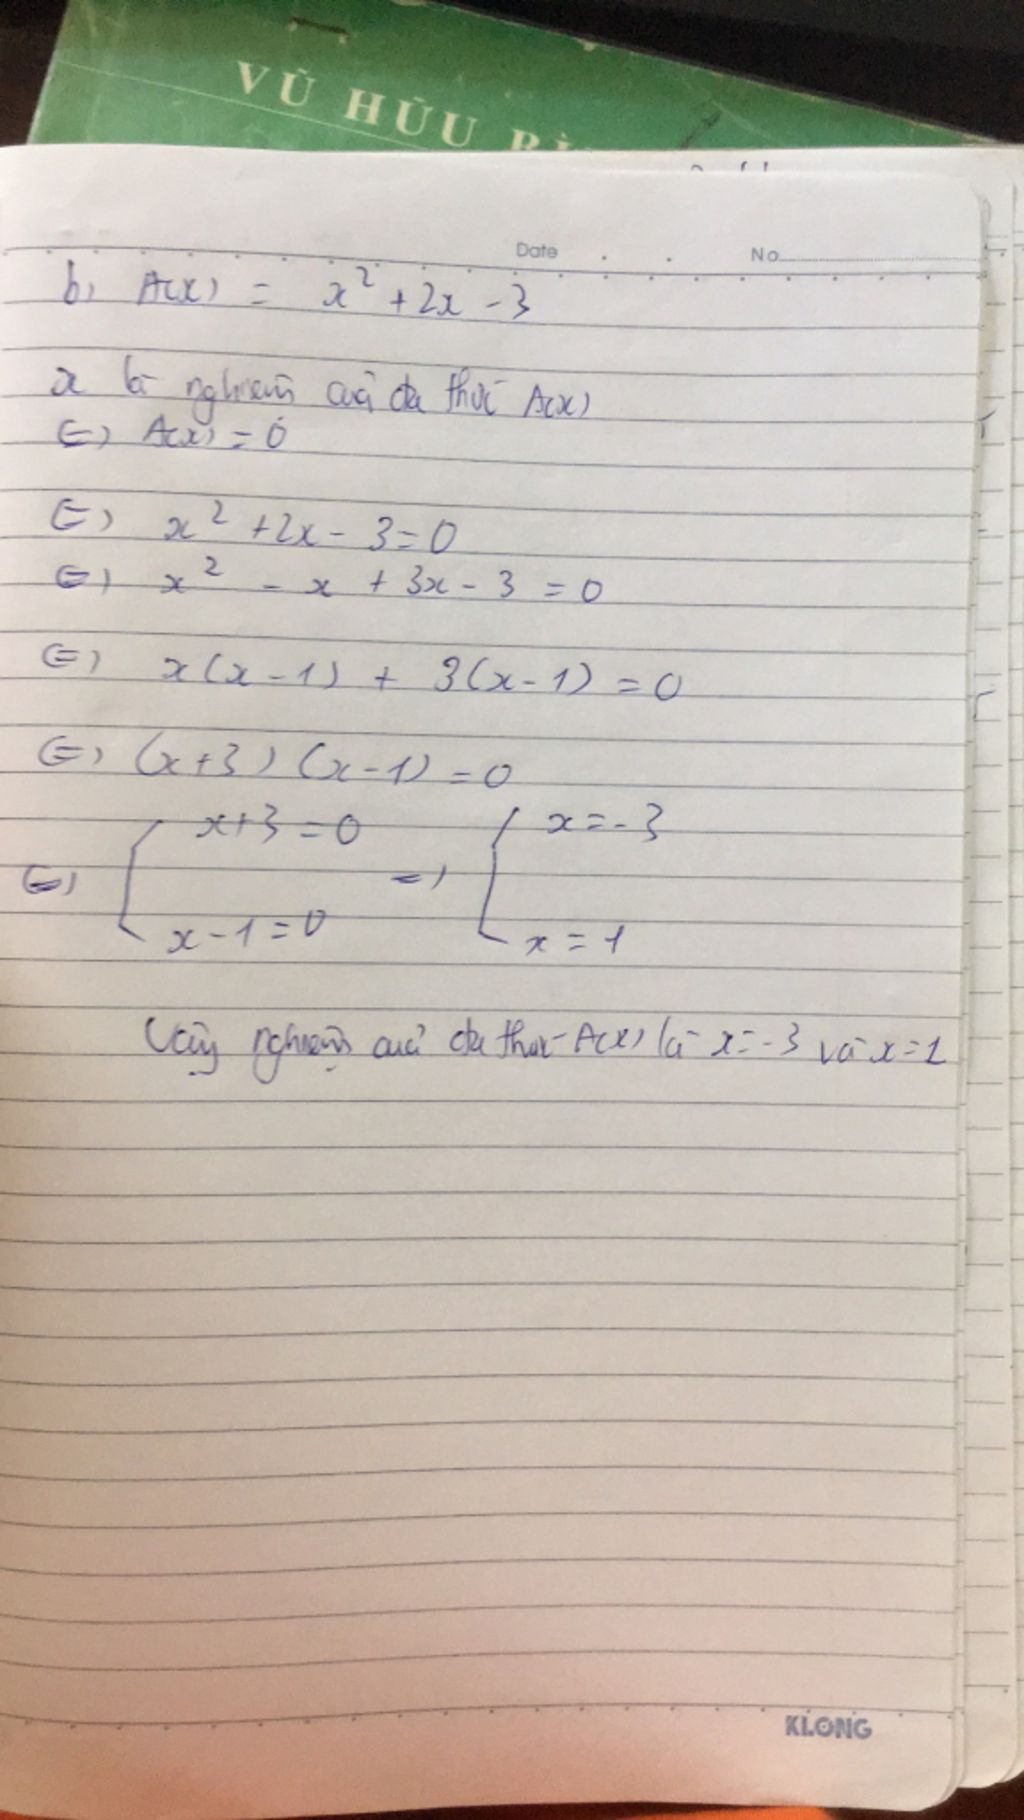 VŨ HỮU BÌ
Date No
b) A(x) = x² + 2x - 3
x là nghiệm của đa thức A(x)
(=) A(x) = 0
(=) x² + 2x - 3 = 0
(=) x² - x + 3x - 3 = 0
(=) x(x - 1) + 3(x - 1) = 0
(=) (x+3) (x-1) = 0
x+3 = 0 x = -3
(=) =)
x - 1 = 0 x = 1
Vậy nghiệm của đa thức A(x) là x = -3 và x = 1
KLONG